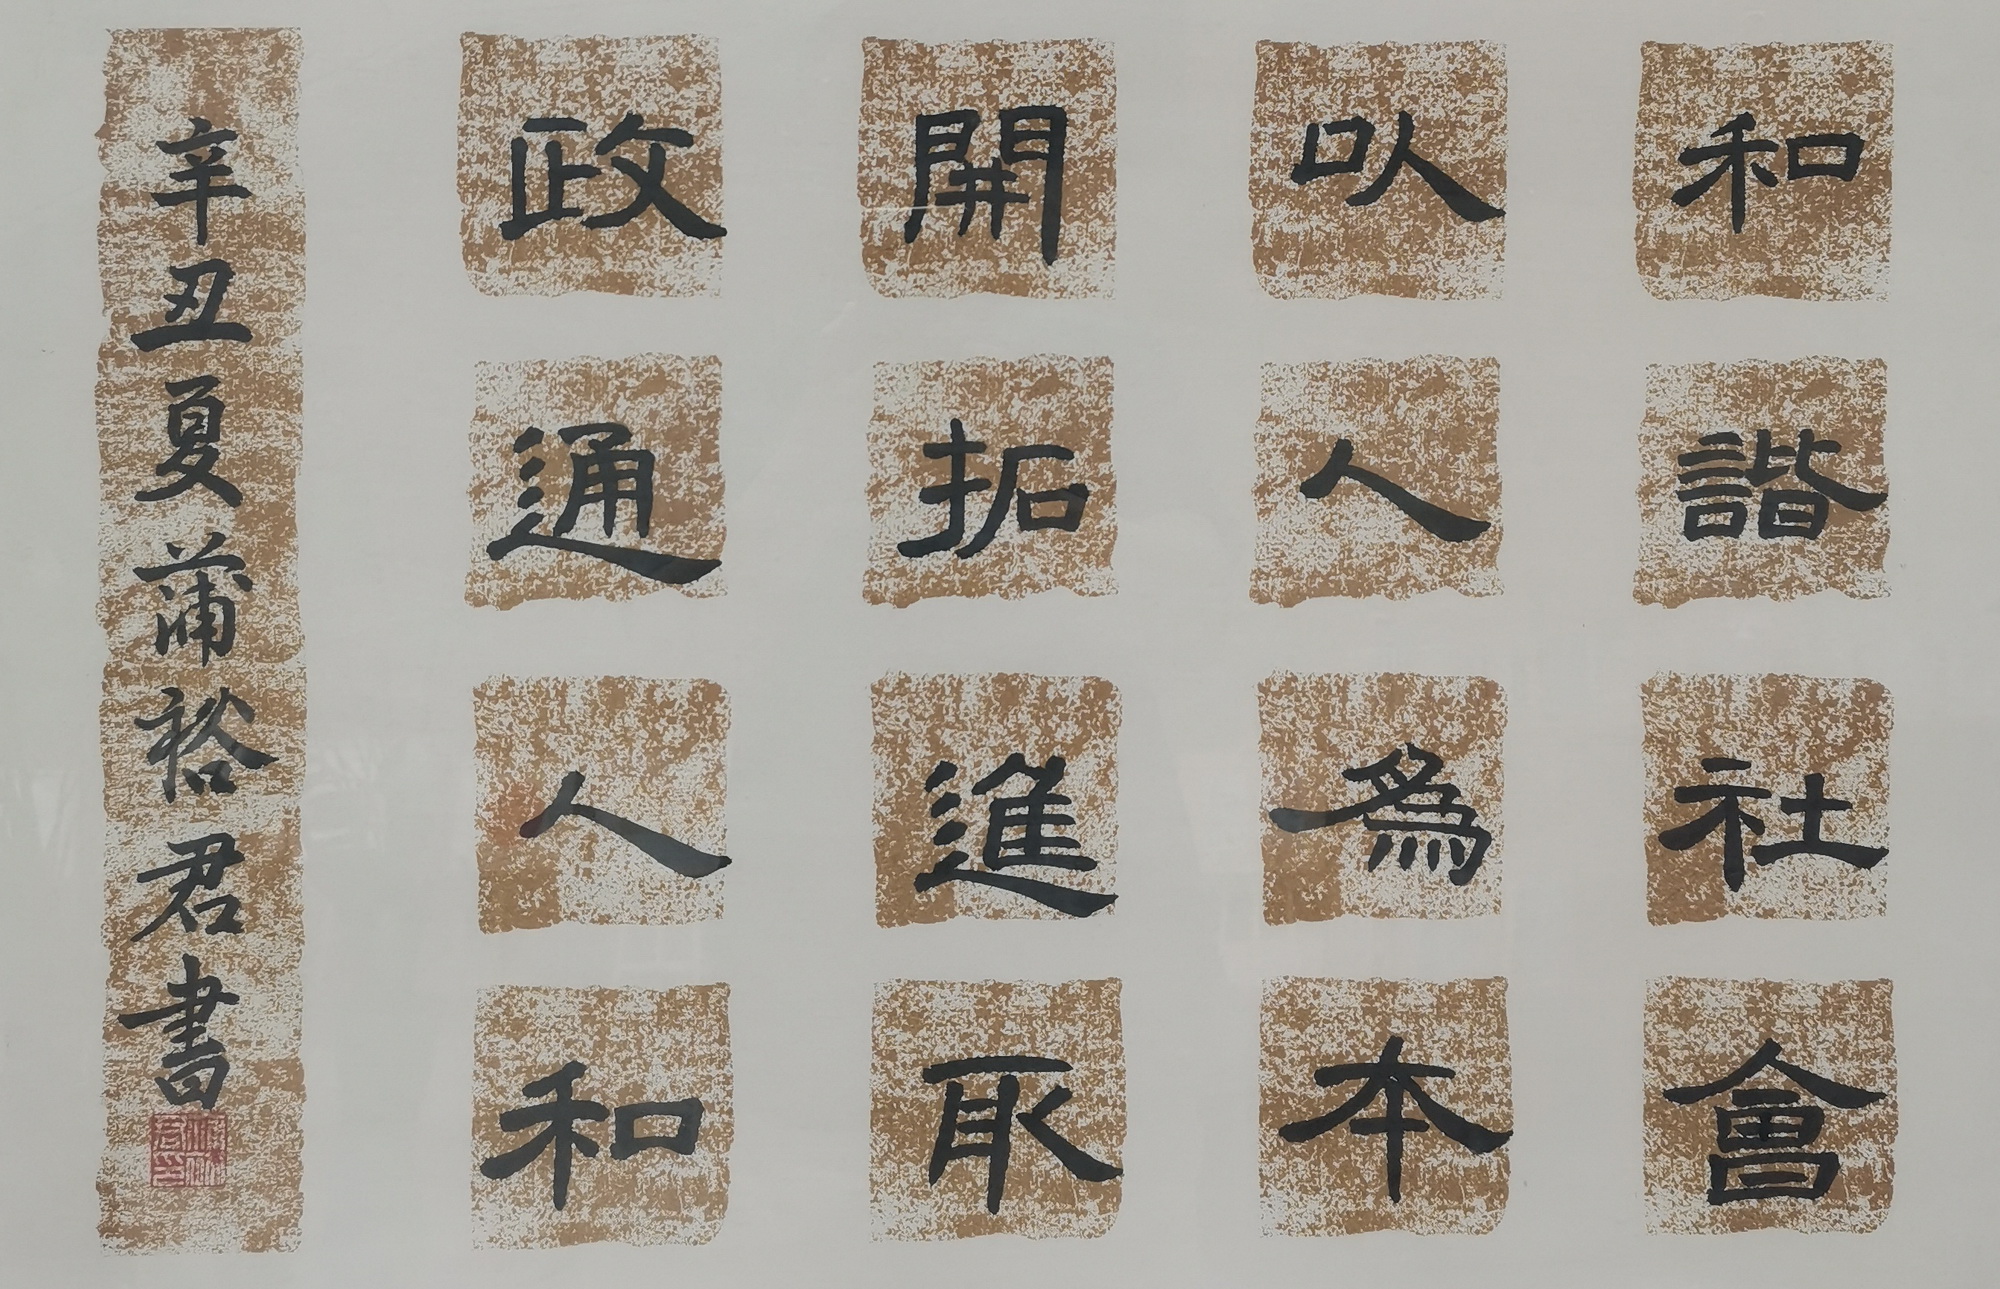 和諧社會
以人為本
開拓進取
政通人和
辛丑夏蒲裕君書